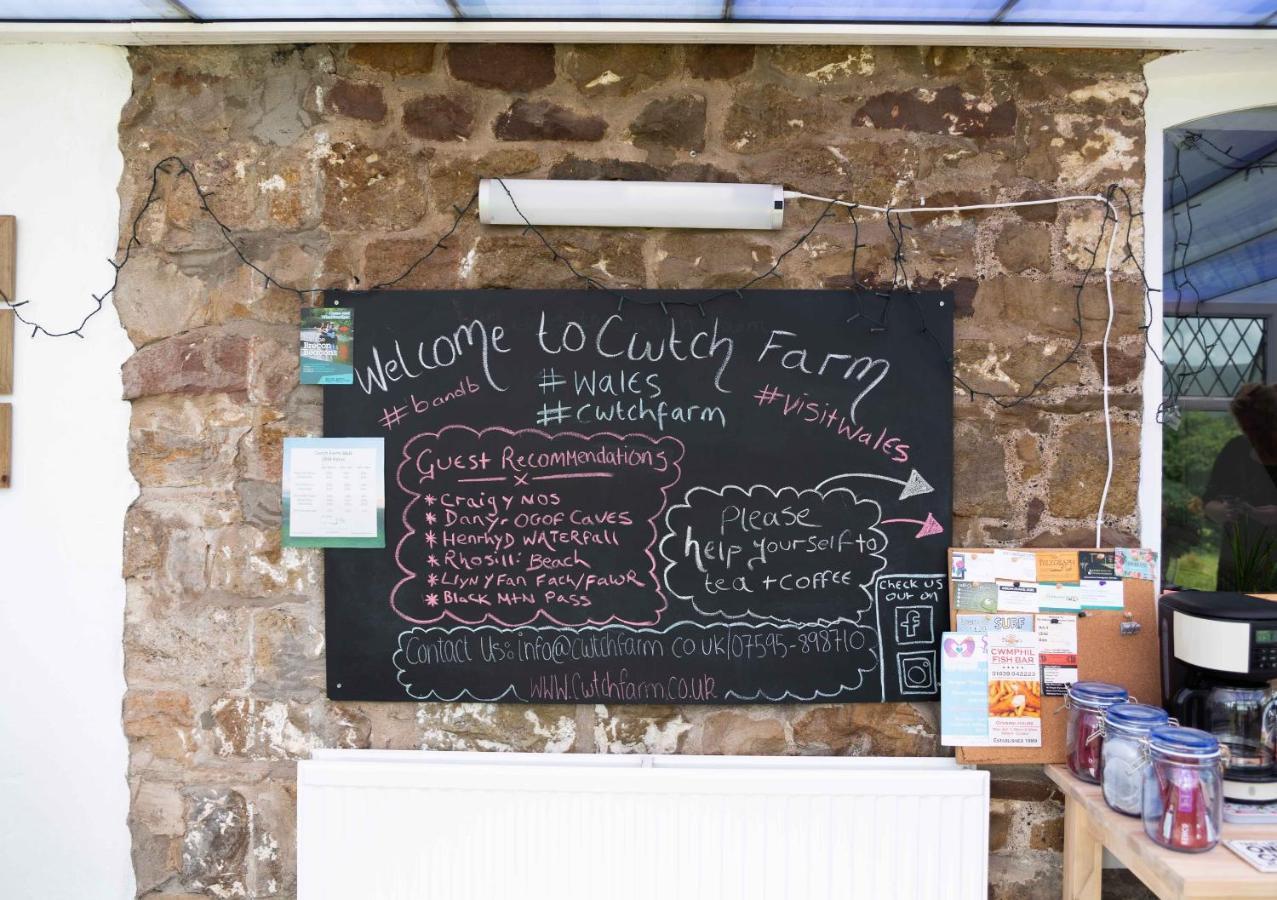 Welcome to Cwtch Farm
#bandb
#Wales
#Cwtchfarm
#VisitWales
Guest Recommendations
x
* Craig y Nos
* Danyr Ogof Caves
* Henrhyd Waterfall
* Rhosilli Beach
* Llyn y Fan Fach/Fawr
* Black Mtn Pass
Please
help yourself to
tea + coffee
Check us
out on
f
Contact Us: info@cwtchfarm.co.uk/07595-898710
www.Cwtchfarm.co.uk
Brecon
Beacons
SURF
CWMPHIL
FISH BAR